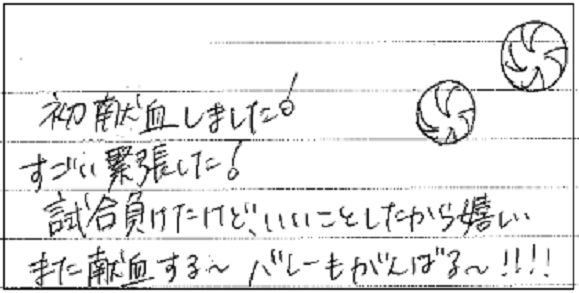 初献血しました!
すごい緊張した!
試合負けたけど、いいことしたから嬉しい
また献血する〜 バレーもがんばる〜!!!!